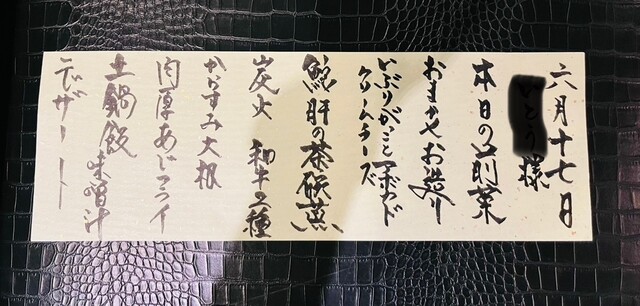 六月十七日
様
本日の前菜
おまかせお造り
いぶりがっことアボカド
クリームチーズ
肝の茶碗蒸し
炭火 和牛二種
からすみ大根
肉厚あじフライ
土鍋飯 味噌汁
デザート